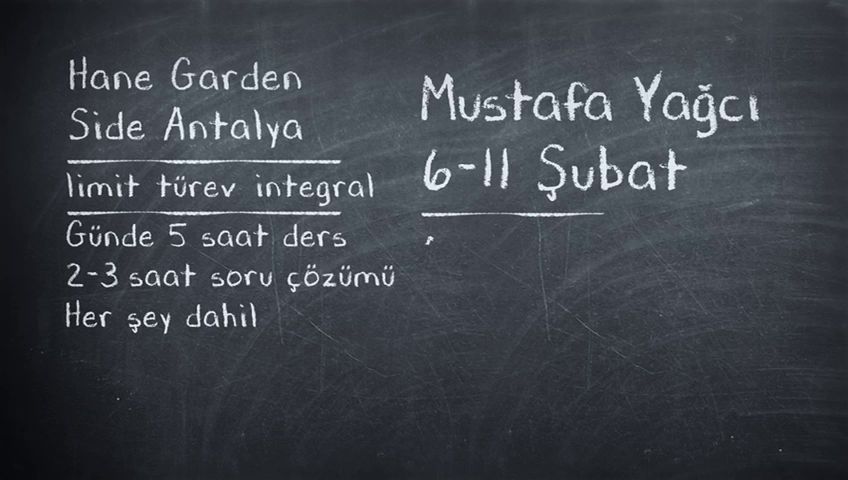 Hane Garden
Side Antalya
limit türev integral
Günde 5 saat ders
2-3 saat soru çözümü
Her şey dahil
Mustafa Yağcı
6-11 Şubat